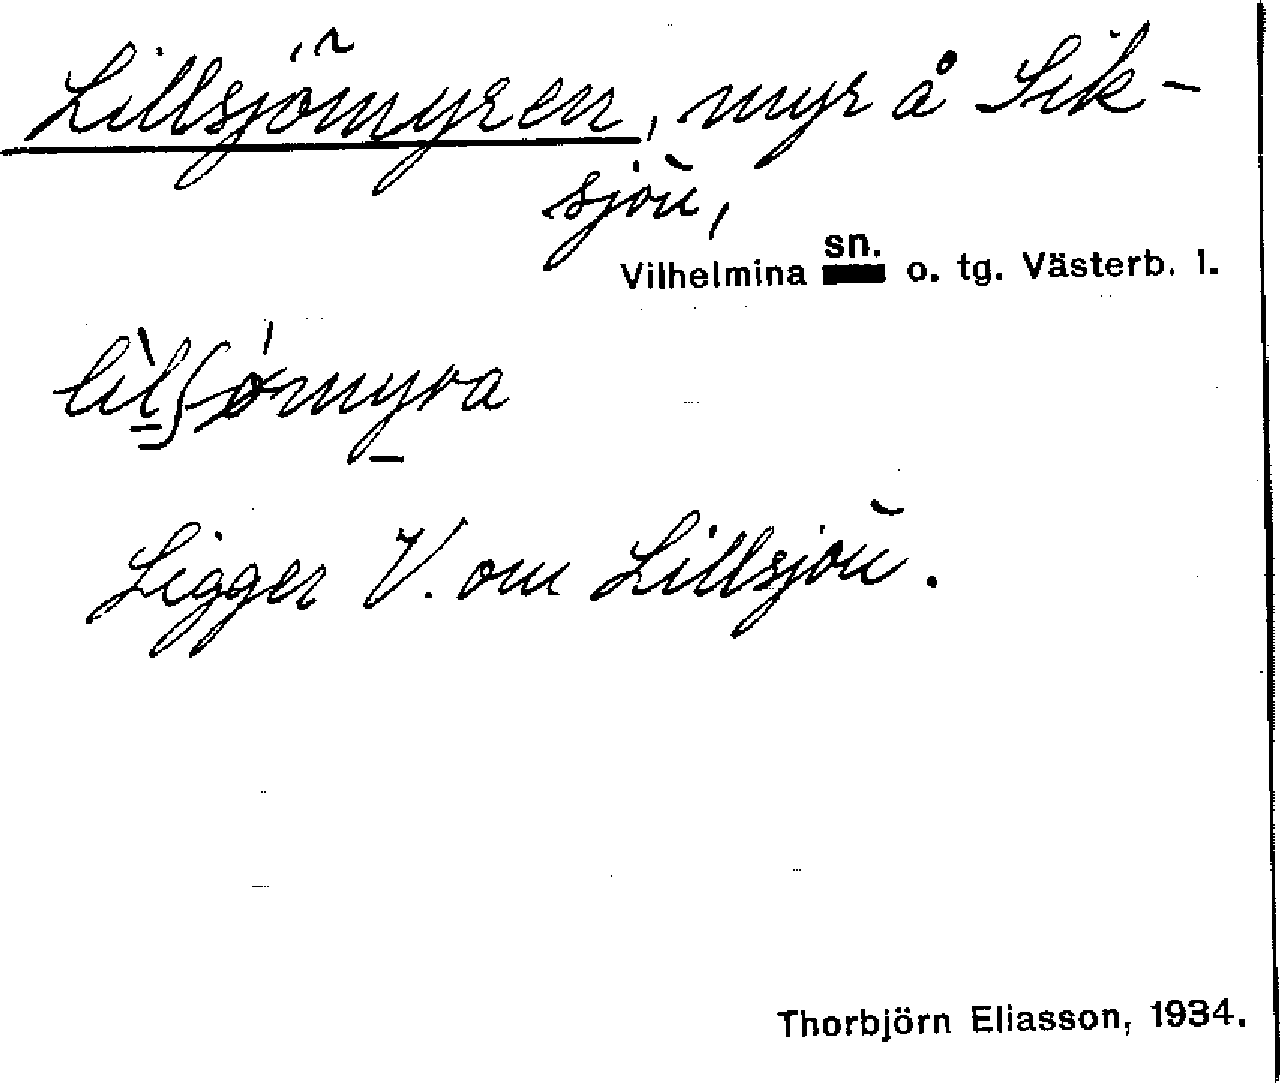 Lillsjömyren, myr å Sik-
sjön,
Vilhelmina sn. o. tg. Västerb. l.
lìlʃǿmyra
Ligger V. om Lillsjön.
Thorbjörn Eliasson, 1934.